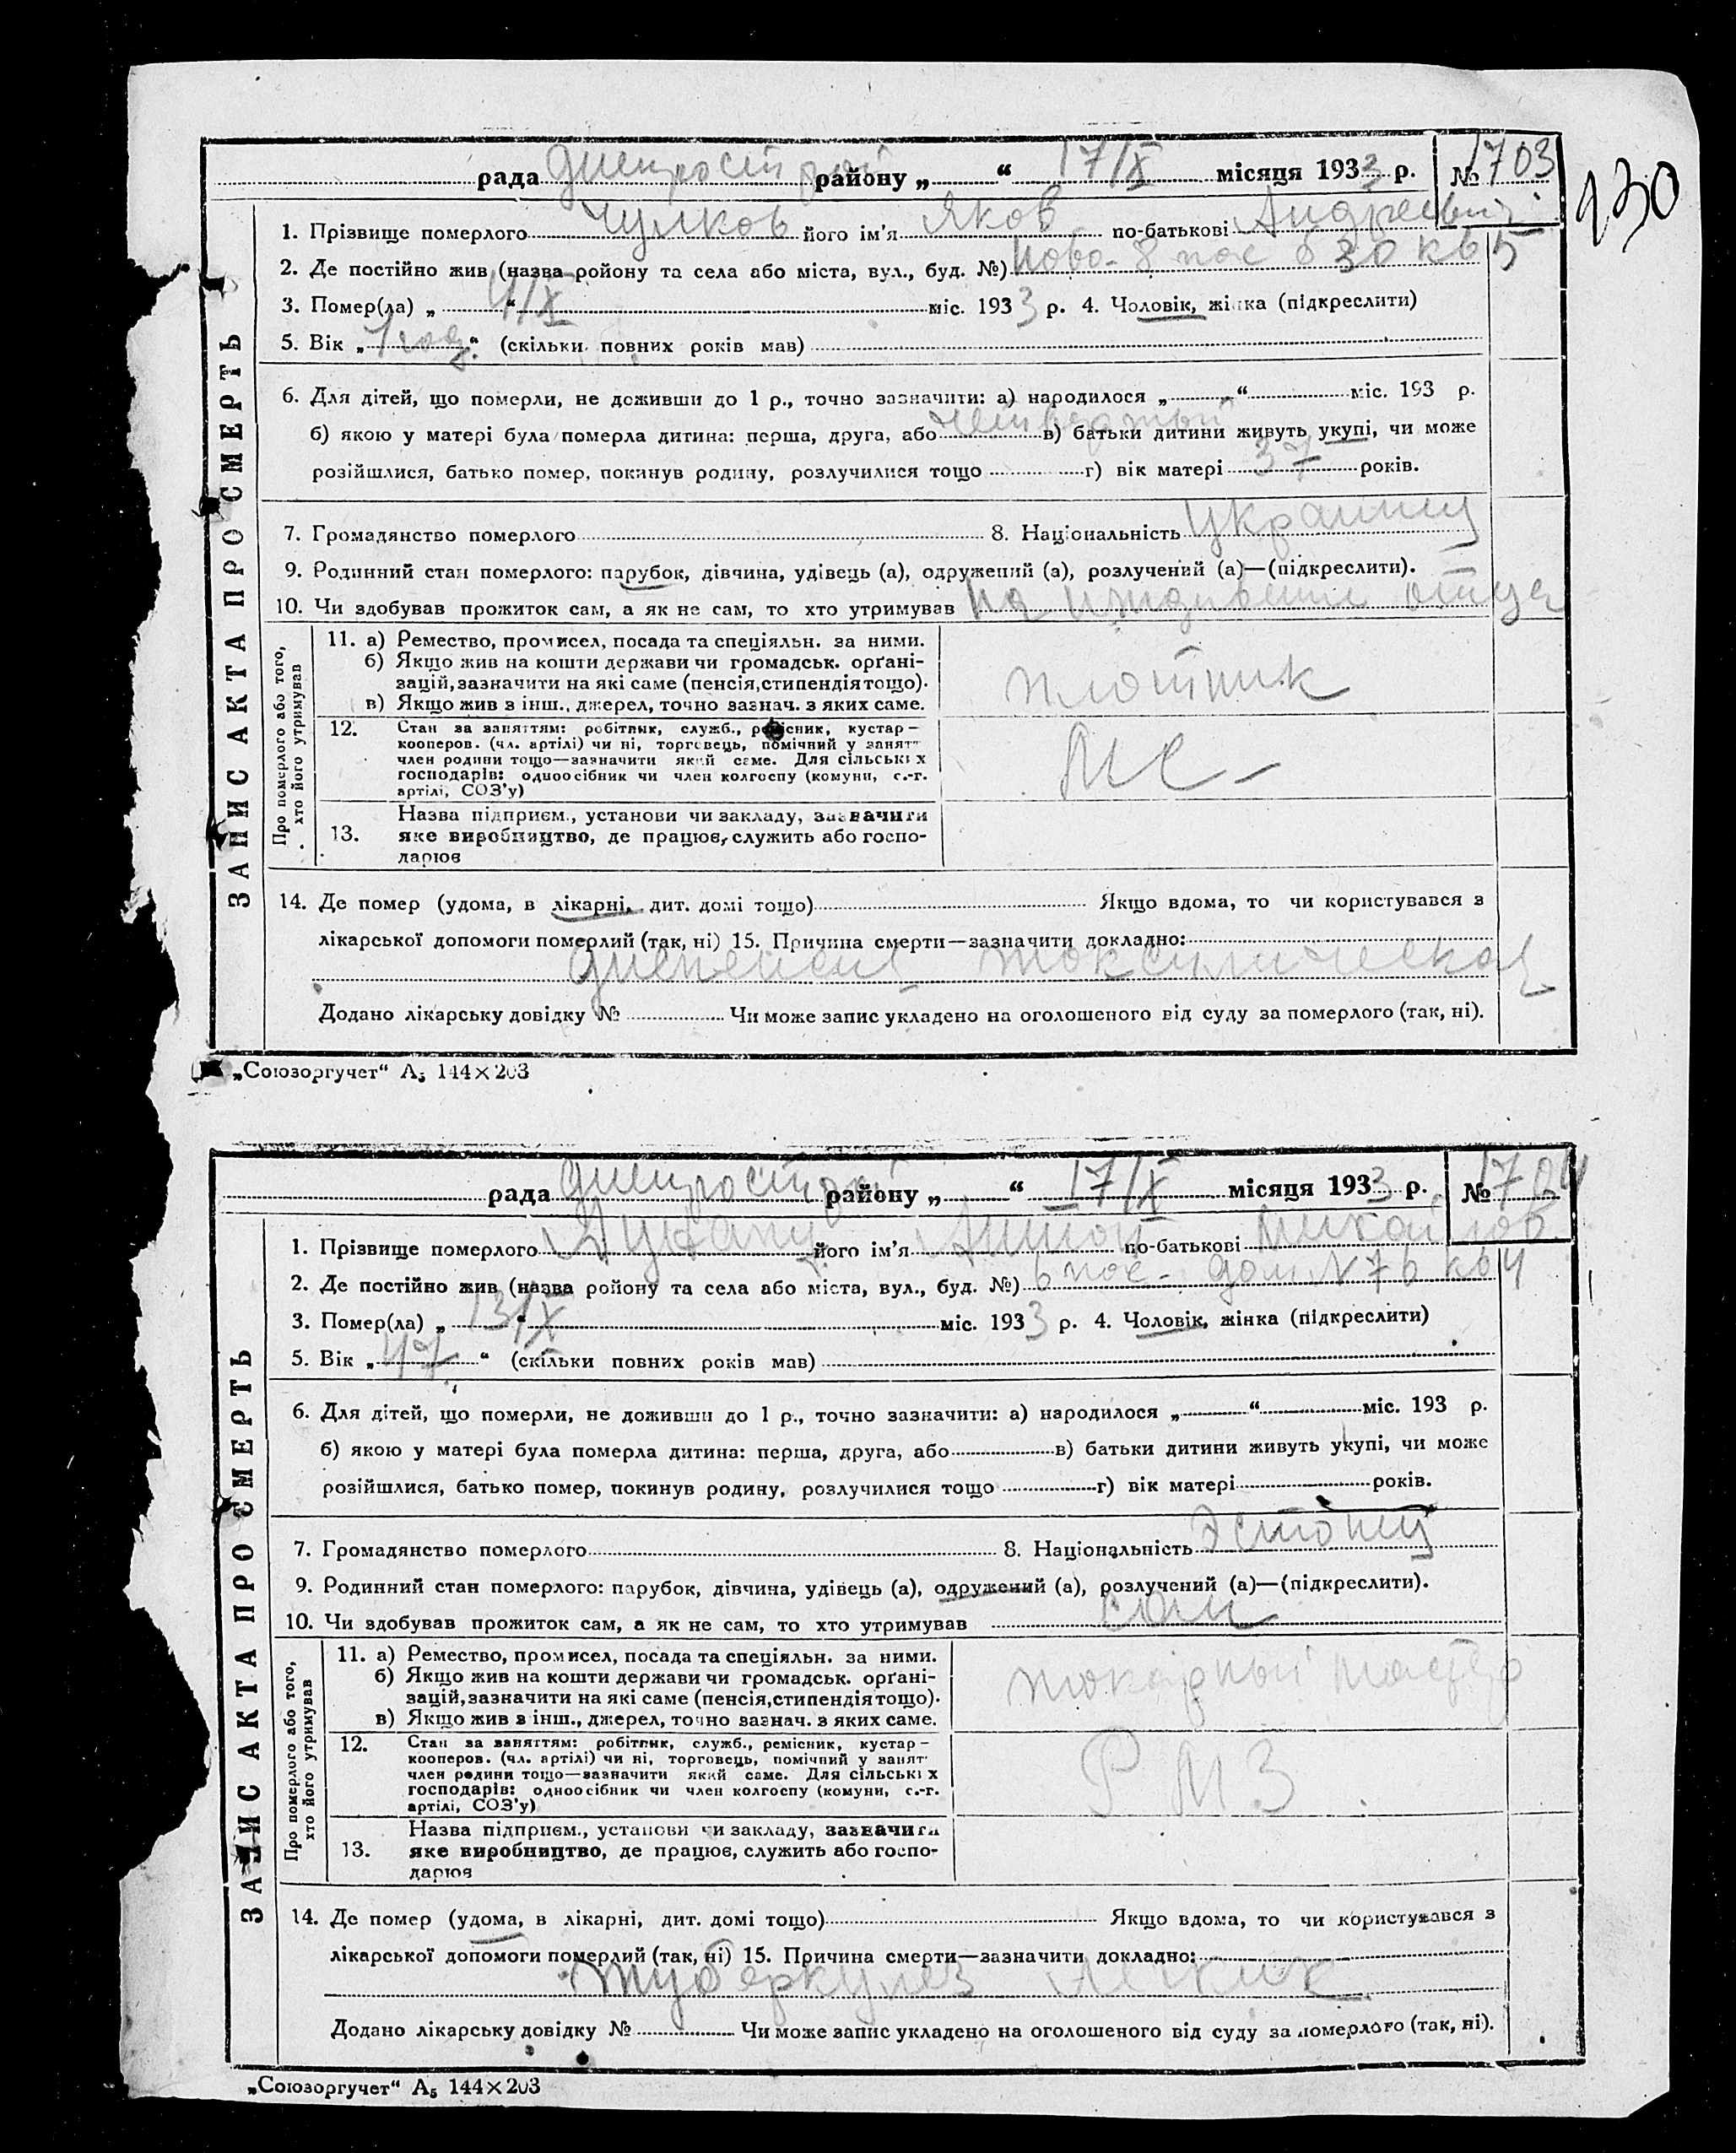 рада Днепрострой району „ “ 17/IX місяця 1933 р. № 1703
230
1. Прізвище померлого Чулков його ім’я Яков по-батькові Андреевич
2. Де постійно жив (назва ройону та села або міста, вул., буд. №) Ново-8 пос б 30 кв 5
3. Помер(ла) „ 4/IX “ міс. 1933 р. 4. Чоловік, жінка (підкреслити)
5. Вік „ 1 год “ (скільки повних років мав)
6. Для дітей, що померли, не доживши до 1 р., точно зазначити: а) народилося „ “ міс. 193 р.
б) якою у матері була померла дитина: перша, друга, або четвертый в) батьки дитини живуть укупі, чи може
розійшлися, батько помер, покинув родину, розлучилися тощо г) вік матері 37 років.
7. Громадянство померлого 8. Національність украинец
9. Родинний стан померлого: парубок, дівчина, удівець (а), одружений (а), розлучений (а)—(підкреслити).
10. Чи здобував прожиток сам, а як не сам, то хто утримував на иждивении отца
ЗАПИС АКТА ПРО СМЕРТЬ
Про померлого або того, хто його утримував
11. а) Ремество, промисел, посада та спеціяльн. за ними.
б) Якщо жив на кошти держави чи громадськ. орґані-
зацій, зазначити на які саме (пенсія, стипендія тощо).
в) Якщо жив з інш., джерел, точно зазнач. з яких саме.
плотник
12. Стан за заняттям: робітник, служб., ремісник, кустар—
кооперов. (чл. артілі) чи ні, торговець, помічний у занят
член родини тощо—зазначити який саме. Для сільських
господарів: одноосібник чи член колгоспу (комуни, с.-г.
артілі, СОЗ’у)
13. Назва підприєм., установи чи закладу, зазначити
яке виробництво, де працює, служить або госпо-
дарює
14. Де помер (удома, в лікарні, дит. домі тощо) Якщо вдома, то чи користувався з
лікарської допомоги померлий (так, ні) 15. Причина смерти—зазначити докладно:
диспепсия токсическая
Додано лікарську довідку № Чи може запис укладено на оголошеного від суду за померлого (так, ні).
„Союзоргучет“ А5 144×203
рада Днепрострой району „ “ 17/IX місяця 1933 р. № 1704
1. Прізвище померлого його ім’я Антон по-батькові Михайлов
2. Де постійно жив (назва ройону та села або міста, вул., буд. №) 6 пос- дом N 76 кв 4
3. Помер(ла) „ 13/IX “ міс. 1933 р. 4. Чоловік, жінка (підкреслити)
5. Вік „ 47 “ (скільки повних років мав)
6. Для дітей, що померли, не доживши до 1 р., точно зазначити: а) народилося „ “ міс. 193 р.
б) якою у матері була померла дитина: перша, друга, або в) батьки дитини живуть укупі, чи може
розійшлися, батько помер, покинув родину, розлучилися тощо г) вік матері років.
7. Громадянство померлого 8. Національність Эстонец
9. Родинний стан померлого: парубок, дівчина, удівець (а), одружений (а), розлучений (а)—(підкреслити).
10. Чи здобував прожиток сам, а як не сам, то хто утримував сам
ЗАПИС АКТА ПРО СМЕРТЬ
Про померлого або того, хто його утримував
11. а) Ремество, промисел, посада та спеціяльн. за ними.
б) Якщо жив на кошти держави чи громадськ. орґані-
зацій, зазначити на які саме (пенсія, стипендія тощо).
в) Якщо жив з інш., джерел, точно зазнач. з яких саме.
токарный мастер
12. Стан за заняттям: робітник, служб., ремісник, кустар—
кооперов. (чл. артілі) чи ні, торговець, помічний у занят
член родини тощо—зазначити який саме. Для сільських
господарів: одноосібник чи член колгоспу (комуни, с.-г.
артілі, СОЗ’у)
РМЗ
13. Назва підприєм., установи чи закладу, зазначити
яке виробництво, де працює, служить або госпо-
дарює
14. Де помер (удома, в лікарні, дит. домі тощо) Якщо вдома, то чи користувався з
лікарської допомоги померлий (так, ні) 15. Причина смерти—зазначити докладно:
туберкулез легких
Додано лікарську довідку № Чи може запис укладено на оголошеного від суду за померлого (так, ні).
„Союзоргучет“ А5 144×203